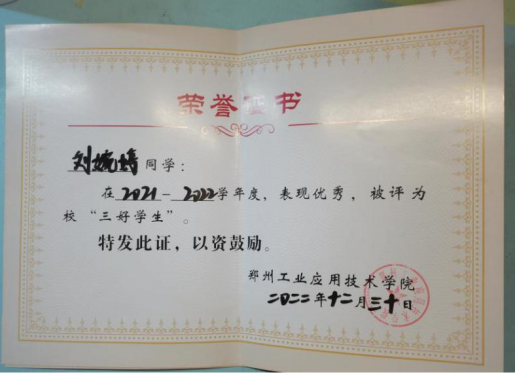 荣誉证书
刘婉婷同学：
在2021-2022学年度，表现优秀，被评为
校“三好学生”。
特发此证，以资鼓励。
郑州工业应用技术学院
二〇二二年十二月三十日